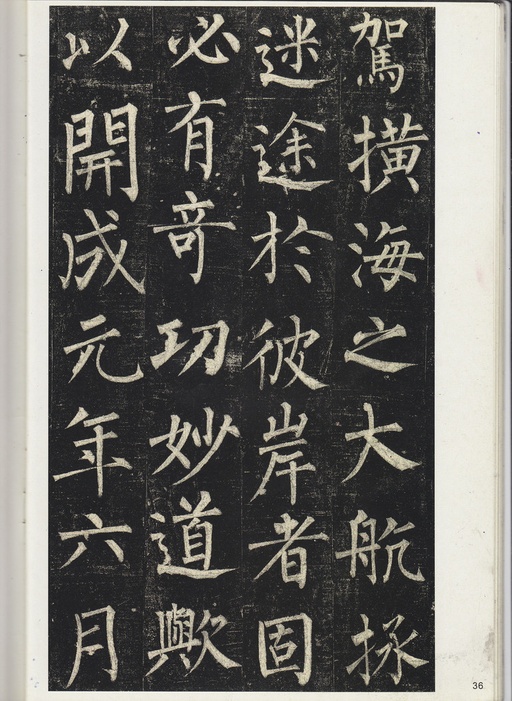 駕撗海之大航拯
迷途於彼岸者固
必有竒功妙道歟
以開成元年六月
36